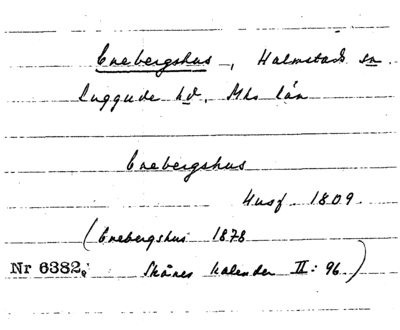 Enebergshus, Halmstads sn.
Luggude hd, Mhs län
Enebergshus
Husf. 1809.
(Enebergshus 1878
Nr 6382. Skånes kalender II: 96.)